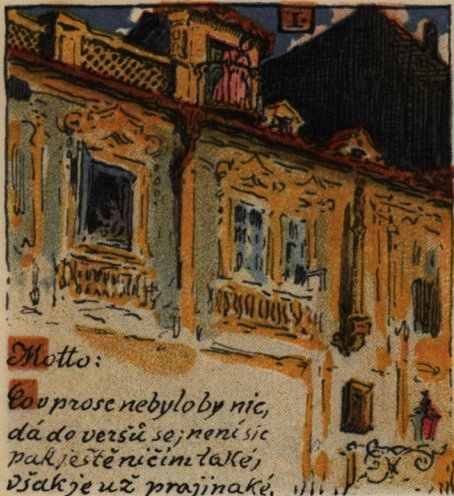 I
Motto:
Co v prose nebylo by nic,
dá do veršů se; není sic
pak ještě ničím také,
však je už prajinaké,